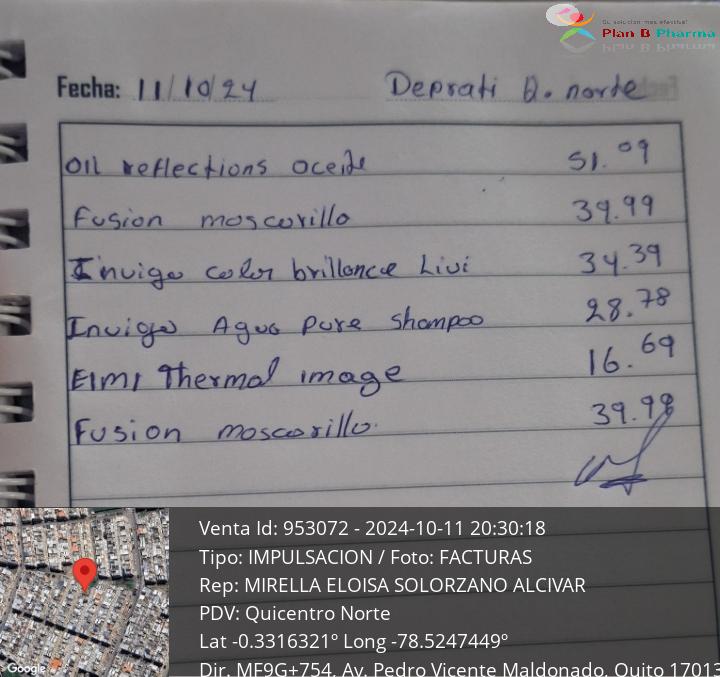 Su solucion mas efectiva!
Plan B Pharma
Fecha: 11/10/24 Deprati Q. norte
Oil reflections aceite 51.09
Fusion mascarilla 39.99
Invigo color brillance Livi 34.39
Invigo Agua Pure shampoo 28.78
EIMI Thermal image 16.69
Fusion mascarilla. 39.98
Venta Id: 953072 - 2024-10-11 20:30:18
Tipo: IMPULSACION / Foto: FACTURAS
Rep: MIRELLA ELOISA SOLORZANO ALCIVAR
PDV: Quicentro Norte
Lat -0.3316321° Long -78.5247449°
Dir. MF9G+754, Av. Pedro Vicente Maldonado, Quito 17013
Google